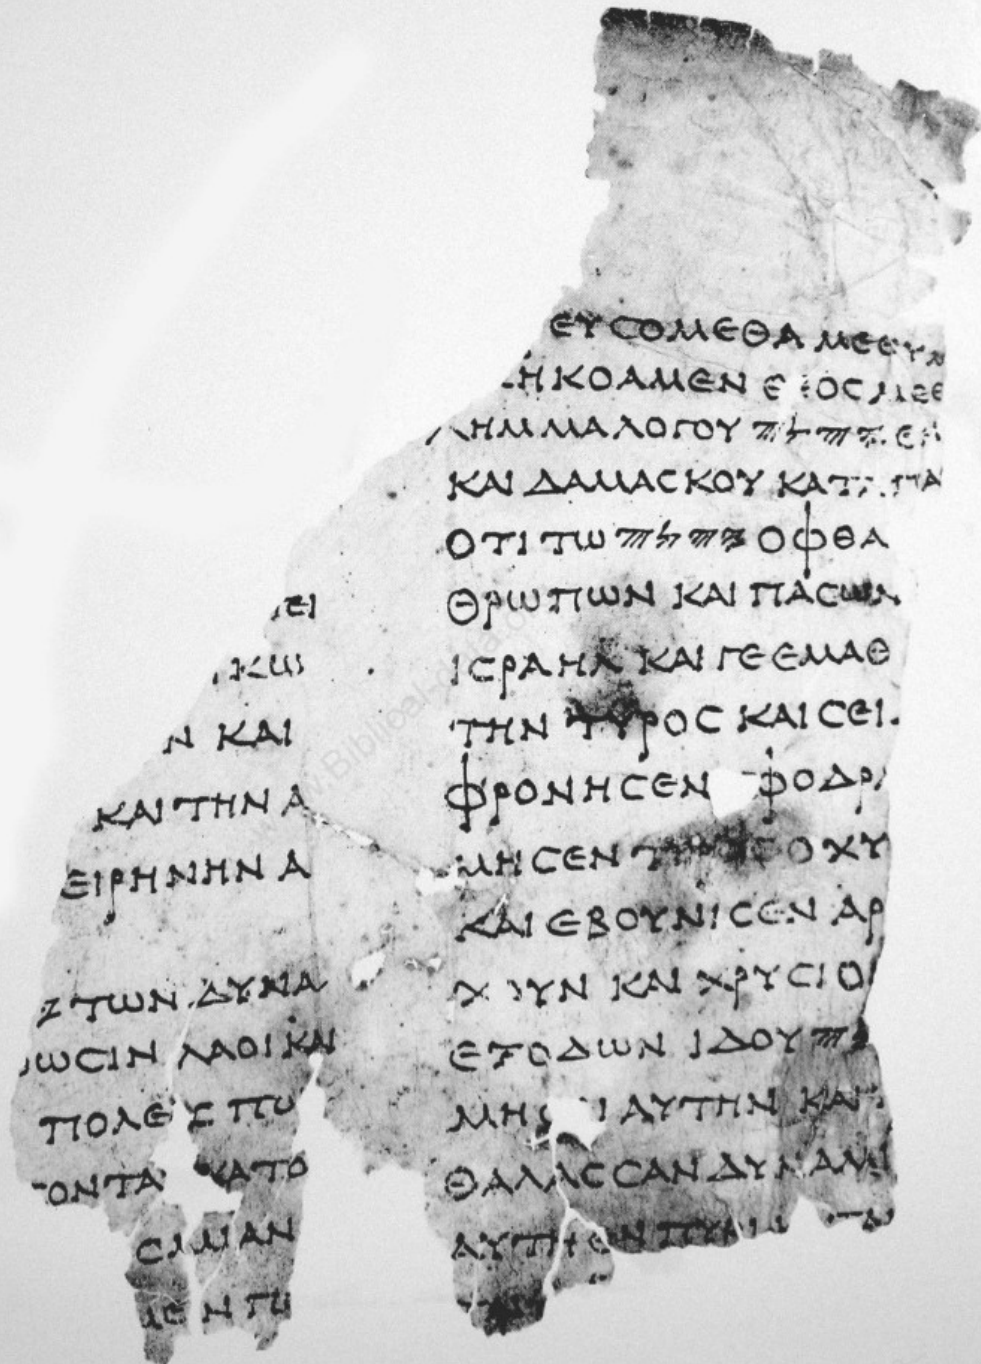 ΕΙ
ΚΩ
Ν ΚΑΙ
ΚΑΙ ΤΗΝ Α
ΕΙΡΗΝΗΝ Α
ΤΩΝ ΔΥΝΑ
ΩϹΙΝ ΛΑΟΙ ΚΑΙ
ΠΟΛΕ Ϲ ΠΟ
ΟΝΤΑ ΚΑΤΟ
ΜΑΝ
ΕΥϹΟΜΕΘΑ ΜΕΘ Υ
ΗΚΟΑΜΕΝ ΟϹ ΜΕΘ
ΛΗΜΜΑ ΛΟΓΟΥ 𐤉𐤄𐤅𐤄 ΕΝ
ΚΑΙ ΔΑΜΑϹΚΟΥ ΚΑΤΑΠΑ
ΟΤΙ ΤΩ 𐤉𐤄𐤅𐤄 ΟΦΘΑ
ΘΡΩΠΩΝ ΚΑΙ ΠΑϹΩΝ
ΙϹΡΑΗΛ ΚΑΙ ΓΕ ΕΜΑΘ
ΤΗΝ ΤΥΡΟϹ ΚΑΙ ϹΕΙ
ΦΡΟΝΗϹΕΝ ΦΟΔΡΑ
ΜΗϹΕΝ ΤΥΡΟϹ ΟΧΥ
ΚΑΙ ΕΒΟΥΝΙϹΕΝ ΑΡ
ΧΟΥΝ ΚΑΙ ΧΡΥϹΙΟ
ΕΞΟΔΩΝ ΙΔΟΥ 𐤉𐤄
ΜΗϹ Ι ΑΥΤΗΝ ΚΑΙ
ΘΑΛΑϹϹΑΝ ΔΥΝΑΜΙ
ΑΥΤΗ ΕΝ ΠΥΡΙ